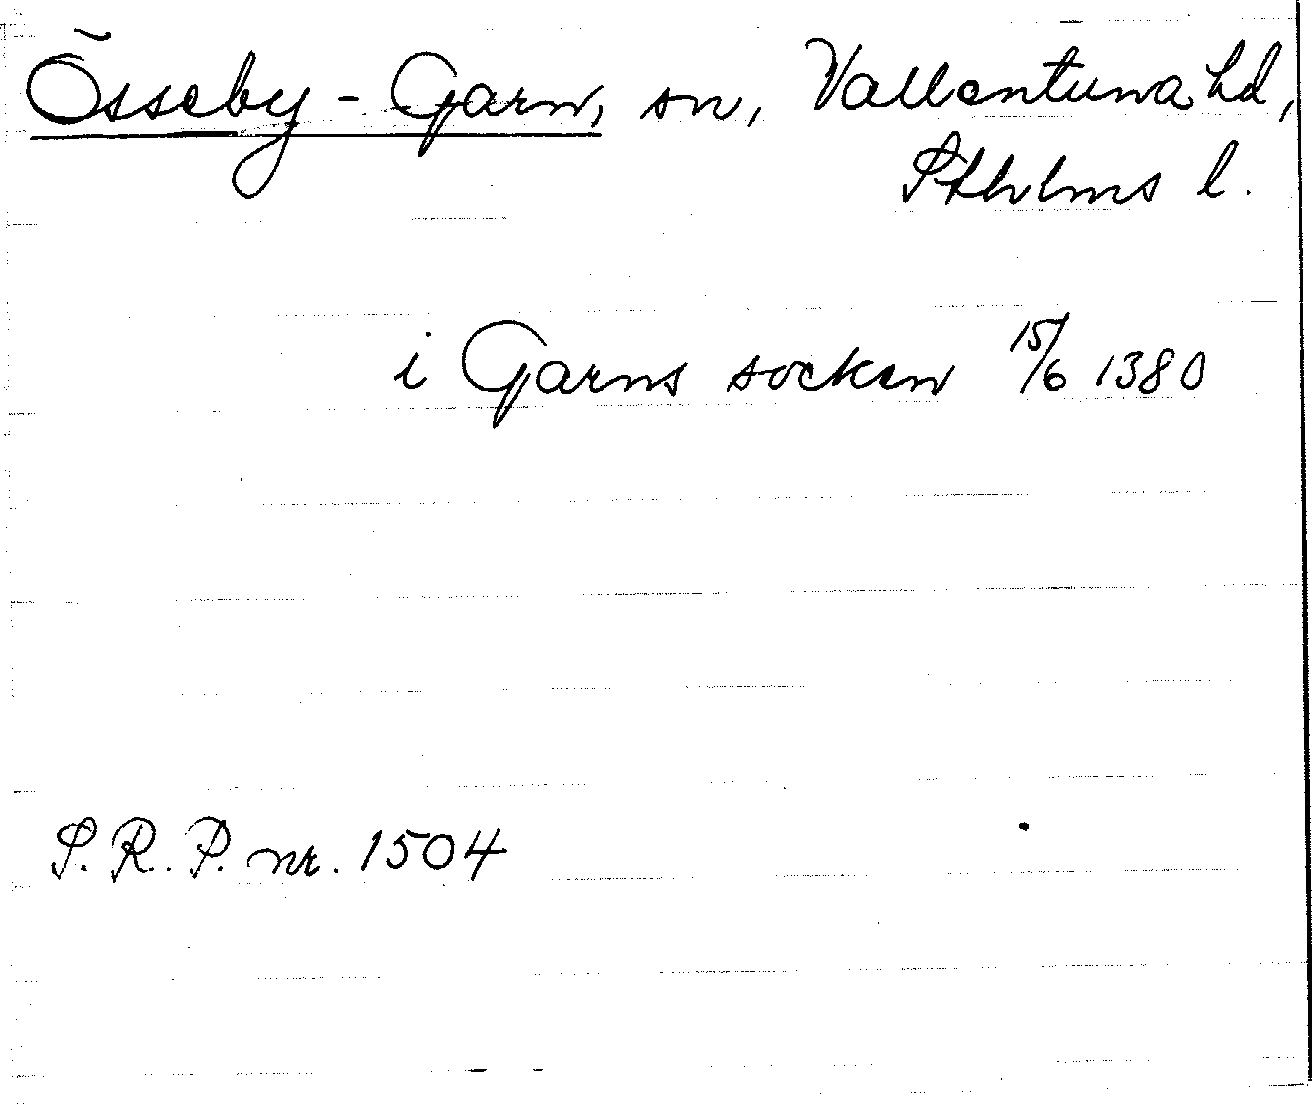 Össeby-Garn, sn, Vallentuna hd,
Sthlms l.
i Garns socken 15/6 1380
S.R.P. nr. 1504